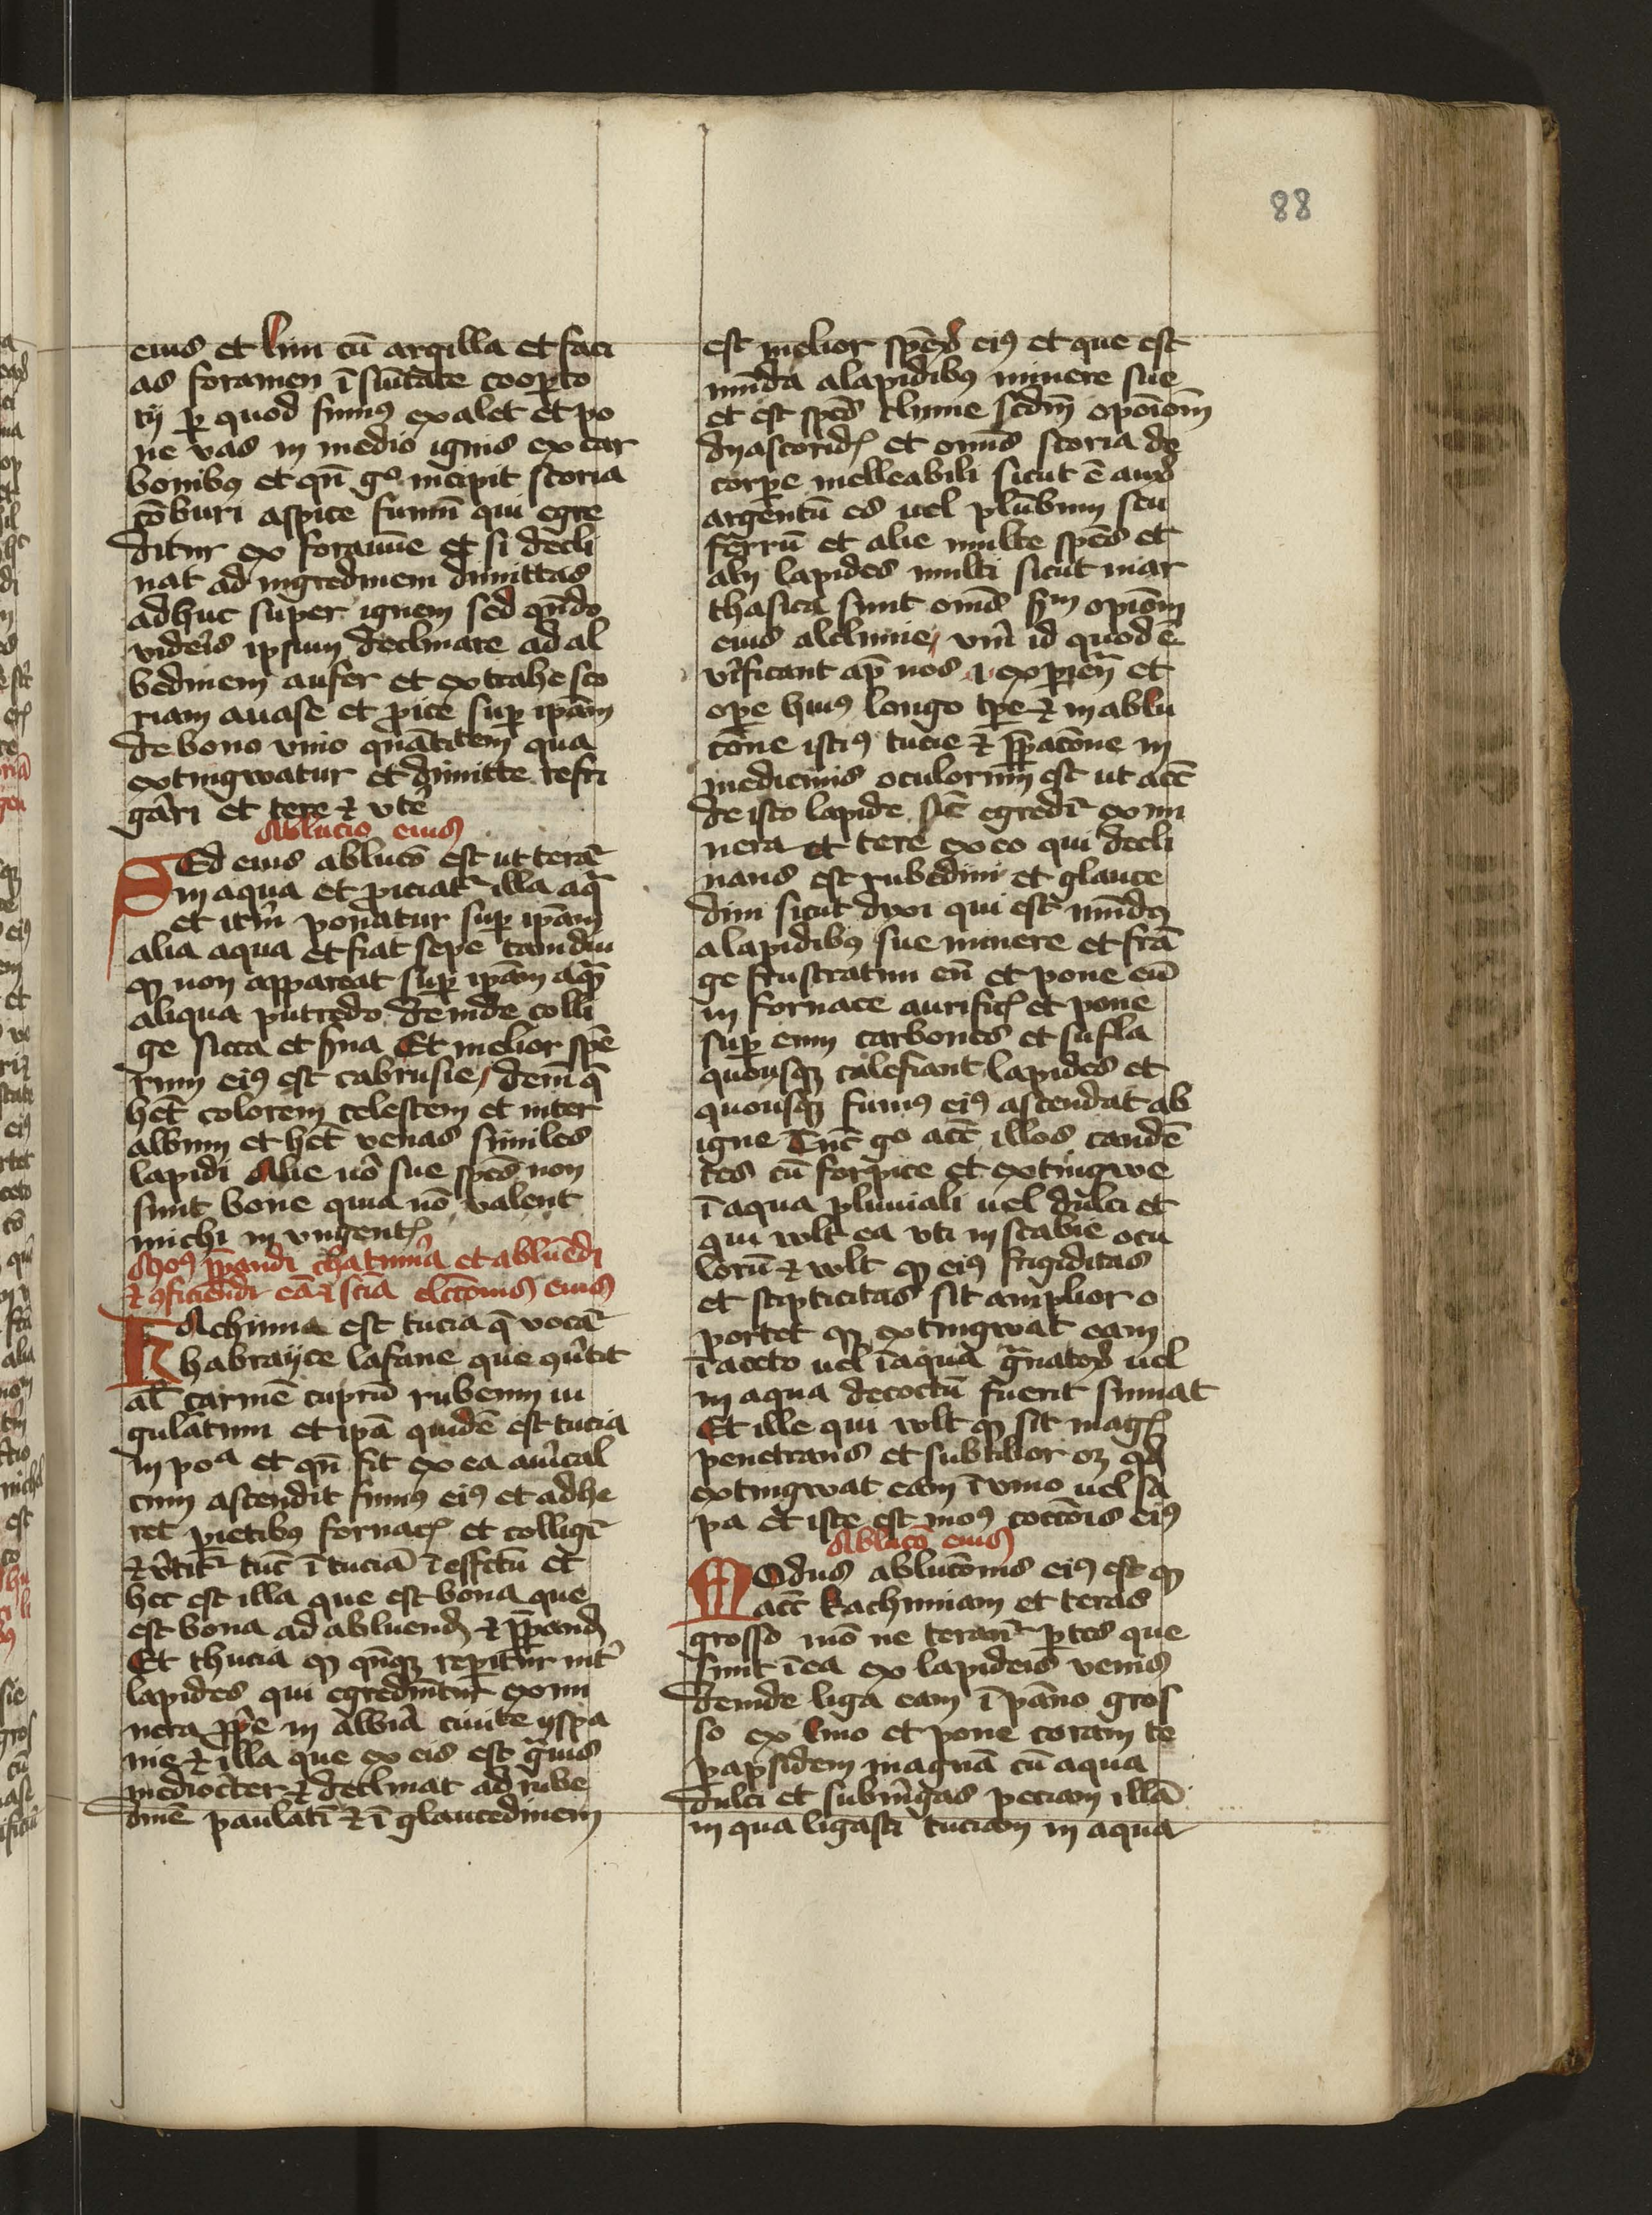 88
eius et lini cū argilla et faci
as foramen ī sūītate cooꝑto
rij ꝑ quod fumꝰ exalet et po
ne vas in medio ignis ex car
bonibꝰ et qn̄ gͦ incipit scoria
cōburi aspice fumū qui egre
ditur ex foramīe et si decli
nat ad nigredinem dimittas
adhuc super ignem sed qn̄do
videīs ipsum declinare ad al
bedinem aufer et extrahe sco
riam a vase et ꝓice suꝑ ipām
de bono vino quātitatem qua
extingwatur et dimitte refri
gāri et tere ⁊ vte
Ablucio eius
SEd eius ablucō est ut terāt
in aqua et ꝓiciatᷣ illa aq̄
et itm̄ ponatur suꝑ ipām
alia aqua et fiat sepe tamdiu
ꝙ non appareat suꝑ ipām aquā
aliqua putredo deinde colli
ge sicca et ẜua Et melior spē
rum eiꝰ est cabrusie, dem̄ q̄
het colorem celestem et inter
album et het venas similes
lapidi Alie uō sue spēs non
sunt bone quia nō valent
michi in vngentꝭ
Moꝰ p̄ꝑandi chatimia et abluēdi
⁊ ꝯficiendi eā ⁊ sciā elccōnis eius
KAchimia est tucia q̄ vocāt
habrayce lafane que ꝯūtit
al̄ carmē cuprū rubeum iu
gulātum et ipā quidē est tucia
in poᵃ et qn̄ fit ex ea auīcal
cum ascendit fumꝰ eiꝰ et adhe
ret ꝑietibꝰ fornacꝭ et colligit̄
⁊ v̄titᷣ tuc ī tuciā ī effctū et
hec est illa que est bona que
est bona ad abluendꝭ ⁊ p̄ꝑandꝭ
Et thucia ꝙ qn̄qꝫ reperitur int̄
lapides qui egrediūtur ex mi
nera ꝓp̄e in albia ciuite yspa
nie ⁊ illa que ex eis est ḡuis
mediocīter ⁊ declinat ad rube
dinē paulatī ⁊ ī glaucedinem
est melior spēꝝ eiꝰ et que est
mūda a lapidibꝰ minere sue
et est spēs clīmie scdm̄ opōiom̄
dyascoridꝭ et omīs scoria de
corꝑe melleabili sicut ē auꝝ
argentū es uel plūbum seu
ferrū et alie multe spēs et
alij lapides multi sicut mar
chasica sunt omīs ẜm opiōm
eius alclimie, vm̄ id quod ē
v̄ificant ap̄ nos ꝑ exꝑien̄ et
oꝑe huiꝰ longo tꝑe ⁊ in ablu
cōne istiꝰ tucie ⁊ p̄ꝑacōne in
medicinis oculorum est ut accꝰ
de isto lapide sic̄ egredit̄ ex mi
nera et tere ex eo qui decli
nans est rubedini et glauce
dini sicut dixi qui est mūdꝰ
a lapidibꝰ sue minere et frā
ge frustratim eū et pone eū
in fornace aurificꝭ et pone
suꝑ eum carbones et sufla
quousqꝫ calefiant lapides et
quousqꝫ fumꝰ eiꝰ ascendat ab
igne Tuc̄ gͦ acc̄ illos candē
tes cū forpice et extingwe
ī aqua pluuiali uel dulci et
qui wlt ea vti in scabie ocu
lorū ⁊ wlt ꝙ eiꝰ frigiditas
et stipticitas sit amplior o
portet ꝙ extingwat eam
ī aceto uel ī aqua ḡnatoꝝ uel
in aqua decoctū fuerit sumat
Et ille qui wlt ꝙ sit magꝭ
penetrans et subtilior oꝫ qd
extingwat eam ī vino uel sa
pa et iste est moꝰ coccōis eiꝰ
Ablucō eius
MOdus ablucōnis eiꝰ est ꝙ
acc̄ kachimiam et teras
grosso mō ne terant᷑ ꝑtes que
sunt ī ea ex lapideis venis
deinde liga eam ī pāno gros
so ex lino et pone coram te
papsidem magnā cū aqua
dulci et submḡas peciam illā
in qua ligasti tuciam in aqua